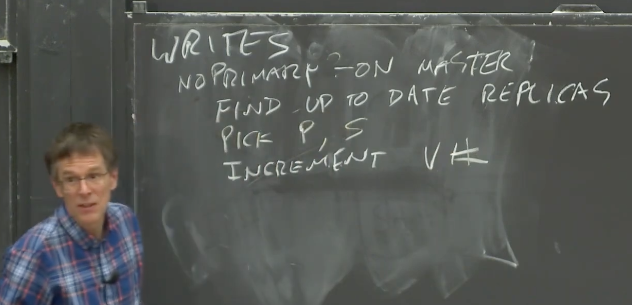 WRITES
NO PRIMARY - ON MASTER
FIND UP TO DATE REPLICAS
PICK P, S
INCREMENT V#